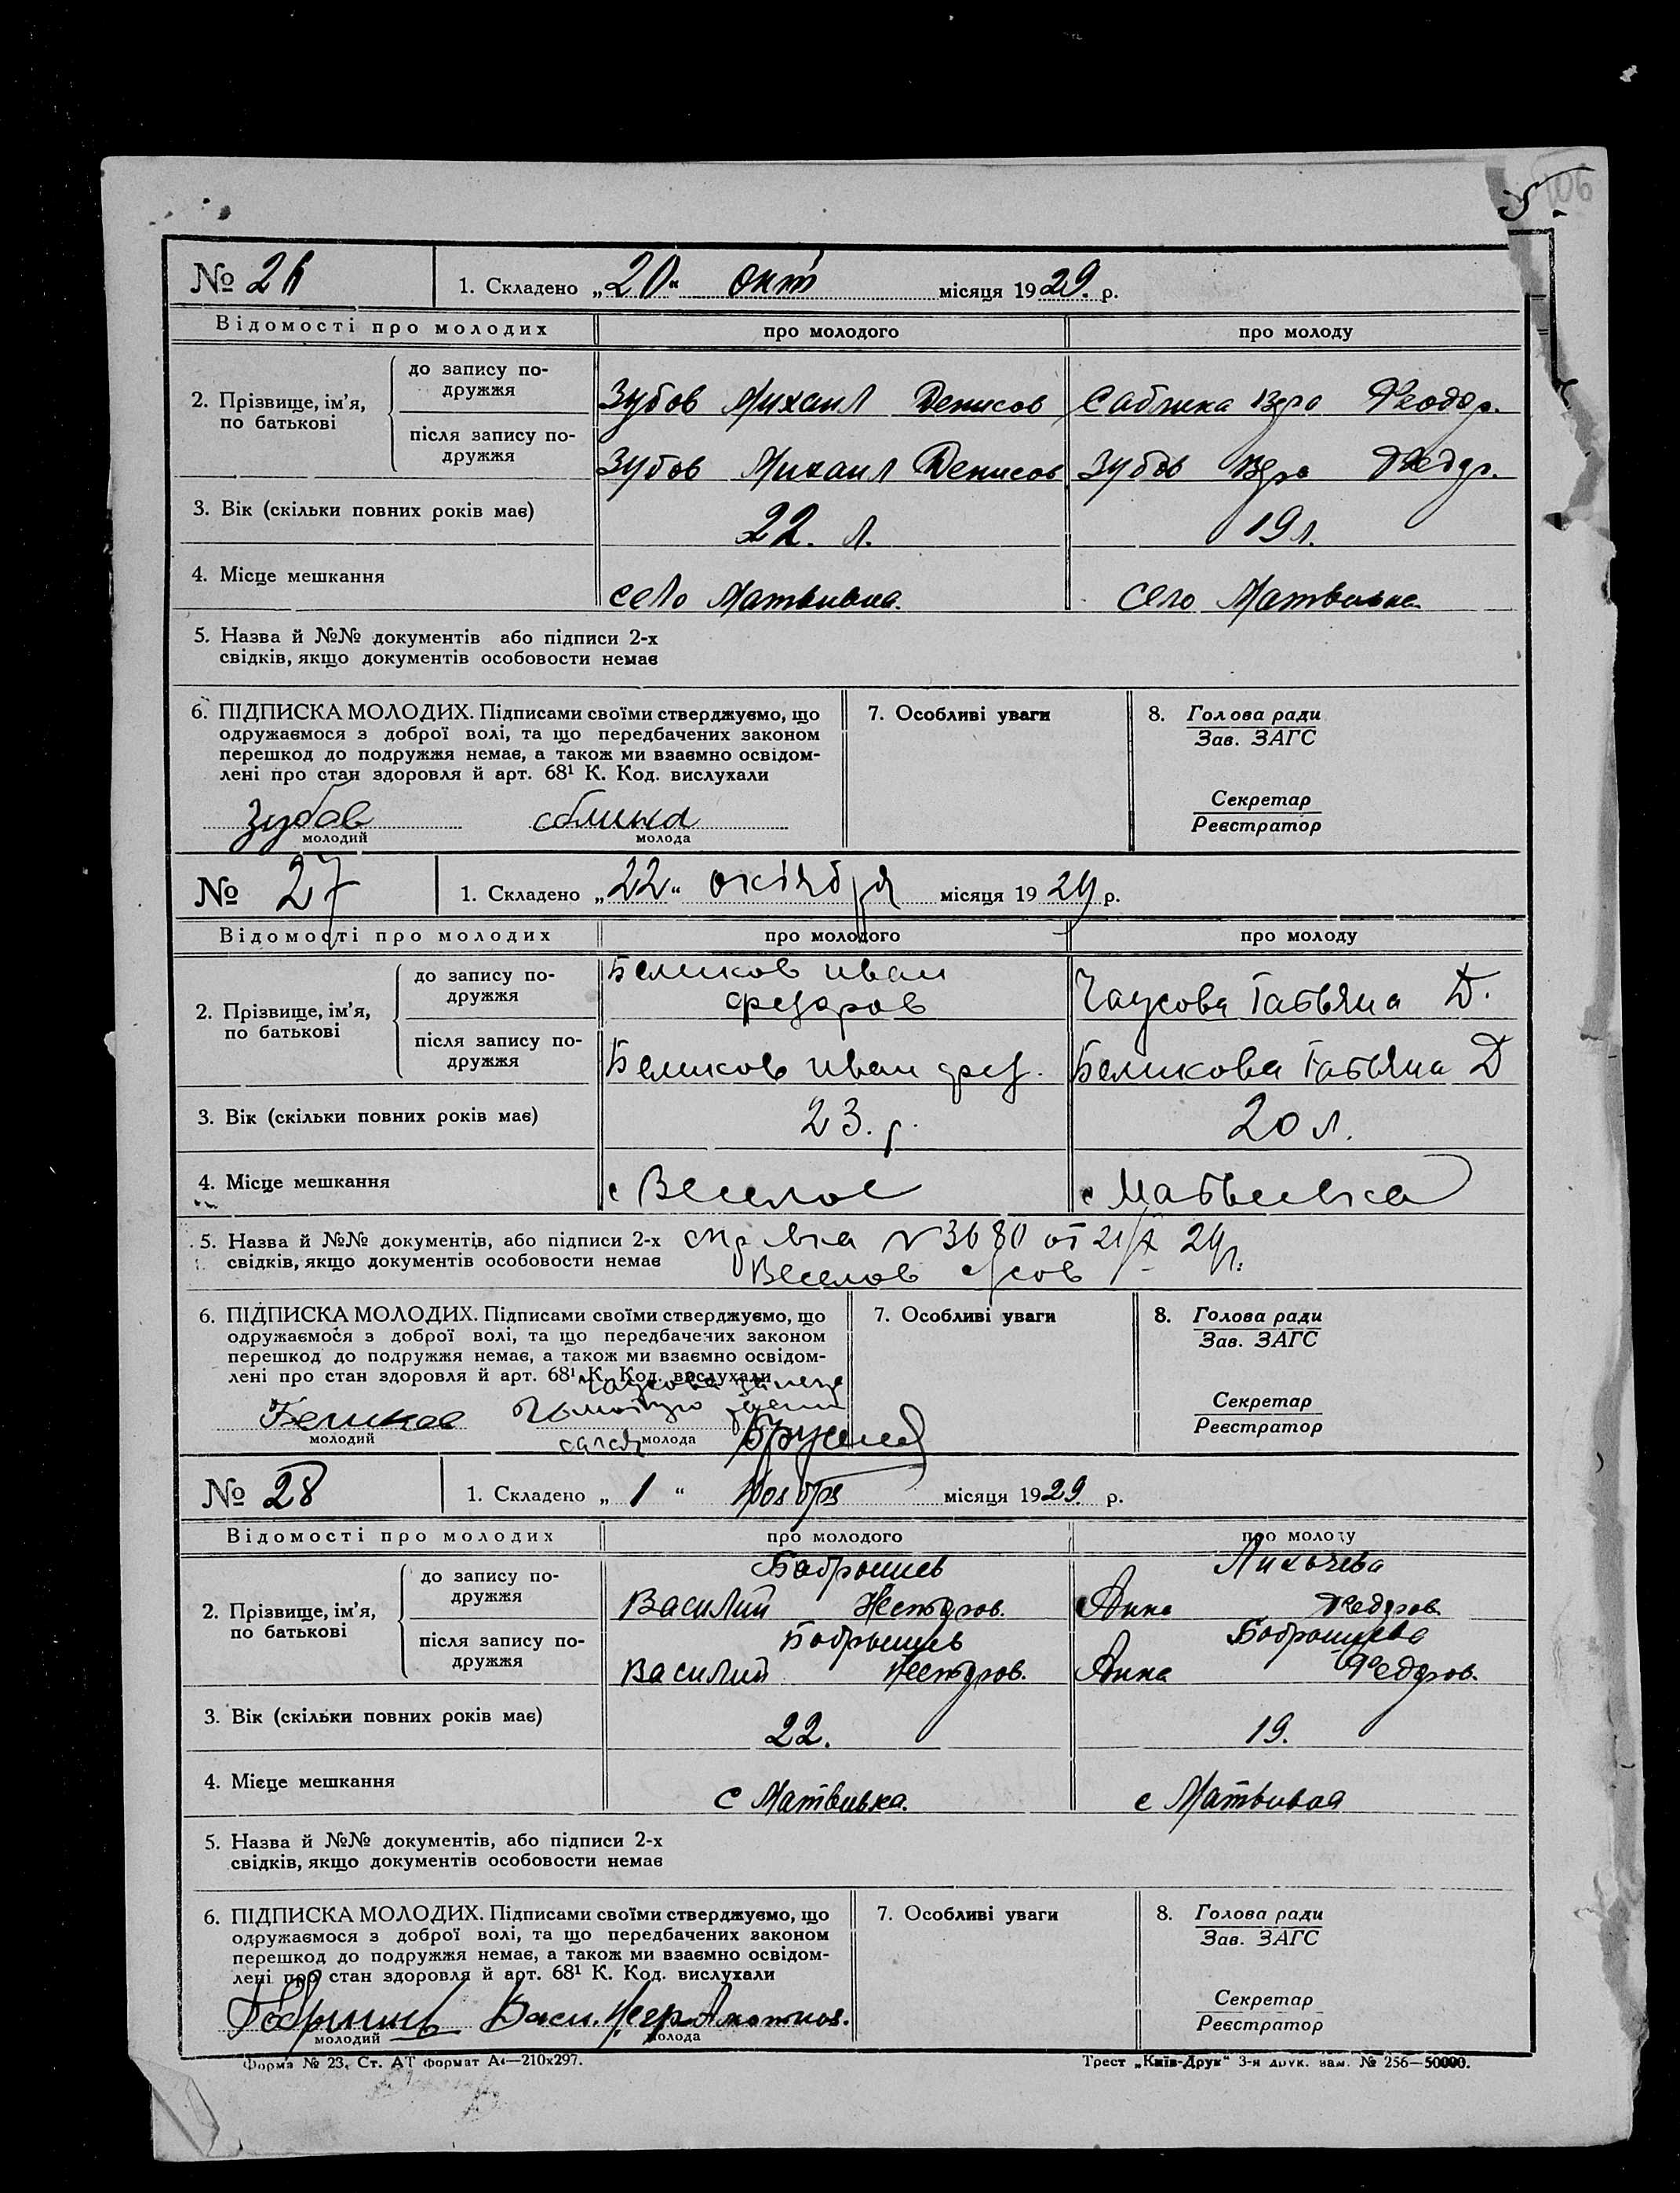 5. 106
№ 26 1. Складено „20“ окт місяця 1929. р.
Відомості про молодих про молодого про молоду
2. Прізвище, ім’я, по батькові
до запису по-дружжя Зубов Михаил Денисов Саблина Вера Феодор.
після запису по-дружжя Зубов Михаил Денисов Зубов Вера Федор.
3. Вік (скільки повних років має) 22. л. 19 л.
4. Місце мешкання село Матвивка. село Матвивка
5. Назва й №№ документів або підписи 2-х
свідків, якщо документів особовости немає
6. ПІДПИСКА МОЛОДИХ. Підписами своїми стверджуємо, що
одружаємося з доброї волі, та що передбачених законом
перешкод до подружжя немає, а також ми взаємно освідом-
лені про стан здоровля й арт. 68¹ К. Код. вислухали
Зубов саблина
молодий молода
7. Особливі уваги
8. Голова ради
Зав. ЗАГС
Секретар
Реєстратор
№ 27 1. Складено „22“ октября місяця 1929 р.
Відомості про молодих про молодого про молоду
2. Прізвище, ім’я, по батькові
до запису по-дружжя Беликов иван федоров Чаусова Татьяна Д.
після запису по-дружжя Беликов иван фед. Беликова Татьяна Д
3. Вік (скільки повних років має) 23. г. 20 л.
4. Місце мешкання с Веселое с Матвеевка
5. Назва й №№ документів, або підписи 2-х справка № 3680 от 21/X 29 г.
свідків, якщо документів особовости немає Веселов с/сов
6. ПІДПИСКА МОЛОДИХ. Підписами своїми стверджуємо, що
одружаємося з доброї волі, та що передбачених законом
перешкод до подружжя немає, а також ми взаємно освідом-
лені про стан здоровля й арт. 68¹ К. Код. вислухали
Чаусова
Беликов
молодий молода
7. Особливі уваги
8. Голова ради
Зав. ЗАГС
Секретар
Реєстратор
№ 28 1. Складено „1“ Ноября місяця 1929. р.
Відомості про молодих про молодого про молоду
2. Прізвище, ім’я, по батькові
до запису по-дружжя Бобрышев Василий Нестеров. Лихачева Анна Федоров.
після запису по-дружжя Бобрышев Василий Нестеров. Бобрышева Анна Федоров.
3. Вік (скільки повних років має) 22. 19.
4. Місце мешкання с Матвивка. с Матвивка
5. Назва й №№ документів, або підписи 2-х
свідків, якщо документів особовости немає
6. ПІДПИСКА МОЛОДИХ. Підписами своїми стверджуємо, що
одружаємося з доброї волі, та що передбачених законом
перешкод до подружжя немає, а також ми взаємно освідом-
лені про стан здоровля й арт. 68¹ К. Код. вислухали
молодий молода
7. Особливі уваги
8. Голова ради
Зав. ЗАГС
Секретар
Реєстратор
Форма № 23, Ст. АТ формат А4—210х297. Трест „Київ-Друк“ 3-я друк. зам. № 256—50000.